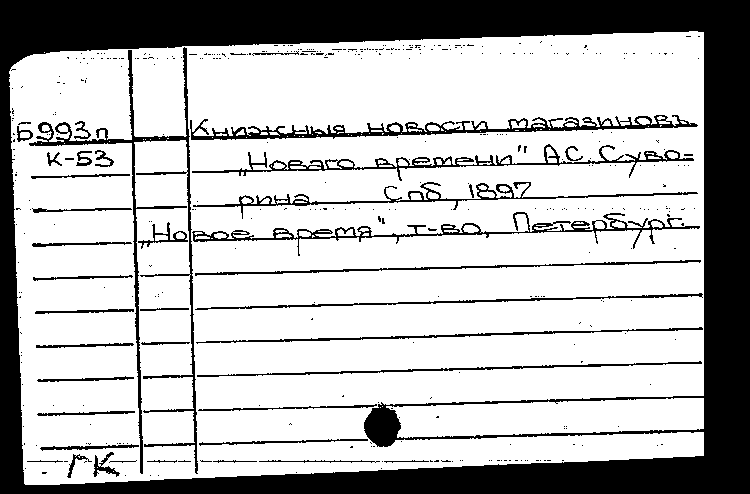 Б993п Книжныя новости магазиновъ
К-53 „Новаго времени" А.С. Суво=
рина Спб, 1897
„Новое время", т-во, Петербург.
ГК